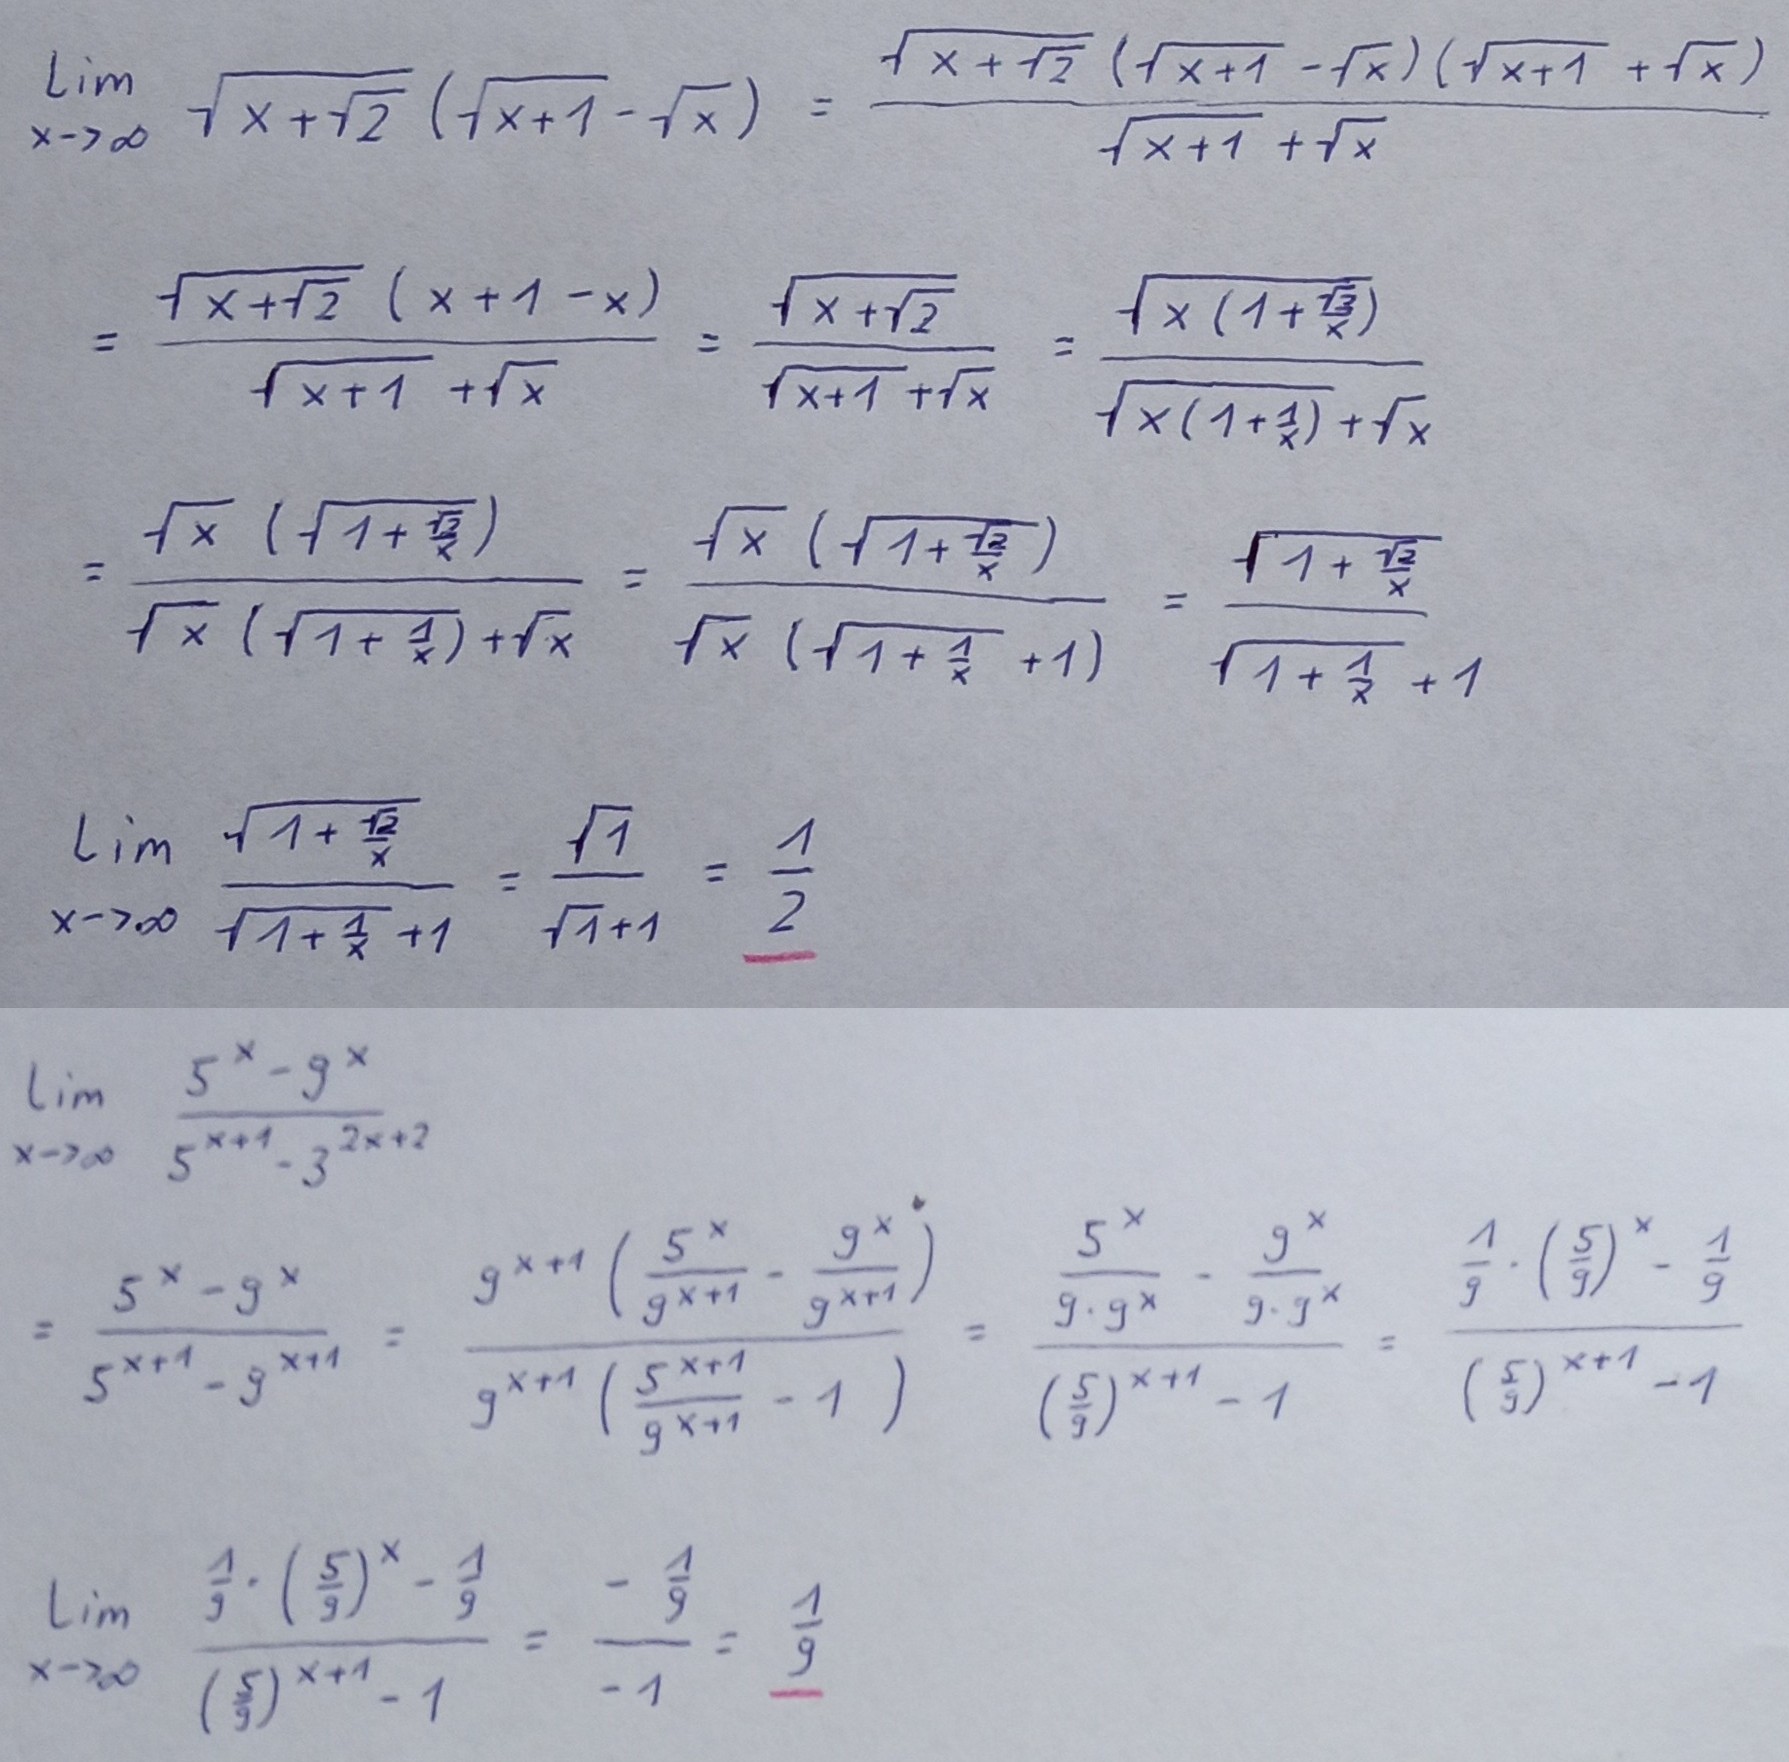 lim x->∞ √(x+√2) (√(x+1) - √x) = (√(x+√2) (√(x+1) - √x) (√(x+1) + √x)) / (√(x+1) + √x)
= (√(x+√2) (x+1-x)) / (√(x+1) + √x) = √(x+√2) / (√(x+1) + √x) = √(x(1+√2/x)) / (√(x(1+1/x)) + √x)
= (√x (√(1+√2/x))) / (√x (√(1+1/x)) + √x) = (√x (√(1+√2/x))) / (√x (√(1+1/x) + 1)) = √(1+√2/x) / (√(1+1/x) + 1)
lim x->∞ √(1+√2/x) / (√(1+1/x) + 1) = √1 / (√1+1) = 1/2
lim x->∞ (5^x - 9^x) / (5^(x+1) - 3^(2x+2))
= (5^x - 9^x) / (5^(x+1) - 9^(x+1)) = (9^(x+1) (5^x/9^(x+1) - 9^x/9^(x+1))) / (9^(x+1) (5^(x+1)/9^(x+1) - 1)) = (5^x/(9·9^x) - 9^x/(9·9^x)) / ((5/9)^(x+1) - 1) = (1/9 · (5/9)^x - 1/9) / ((5/9)^(x+1) - 1)
lim x->∞ (1/9 · (5/9)^x - 1/9) / ((5/9)^(x+1) - 1) = (-1/9) / (-1) = 1/9